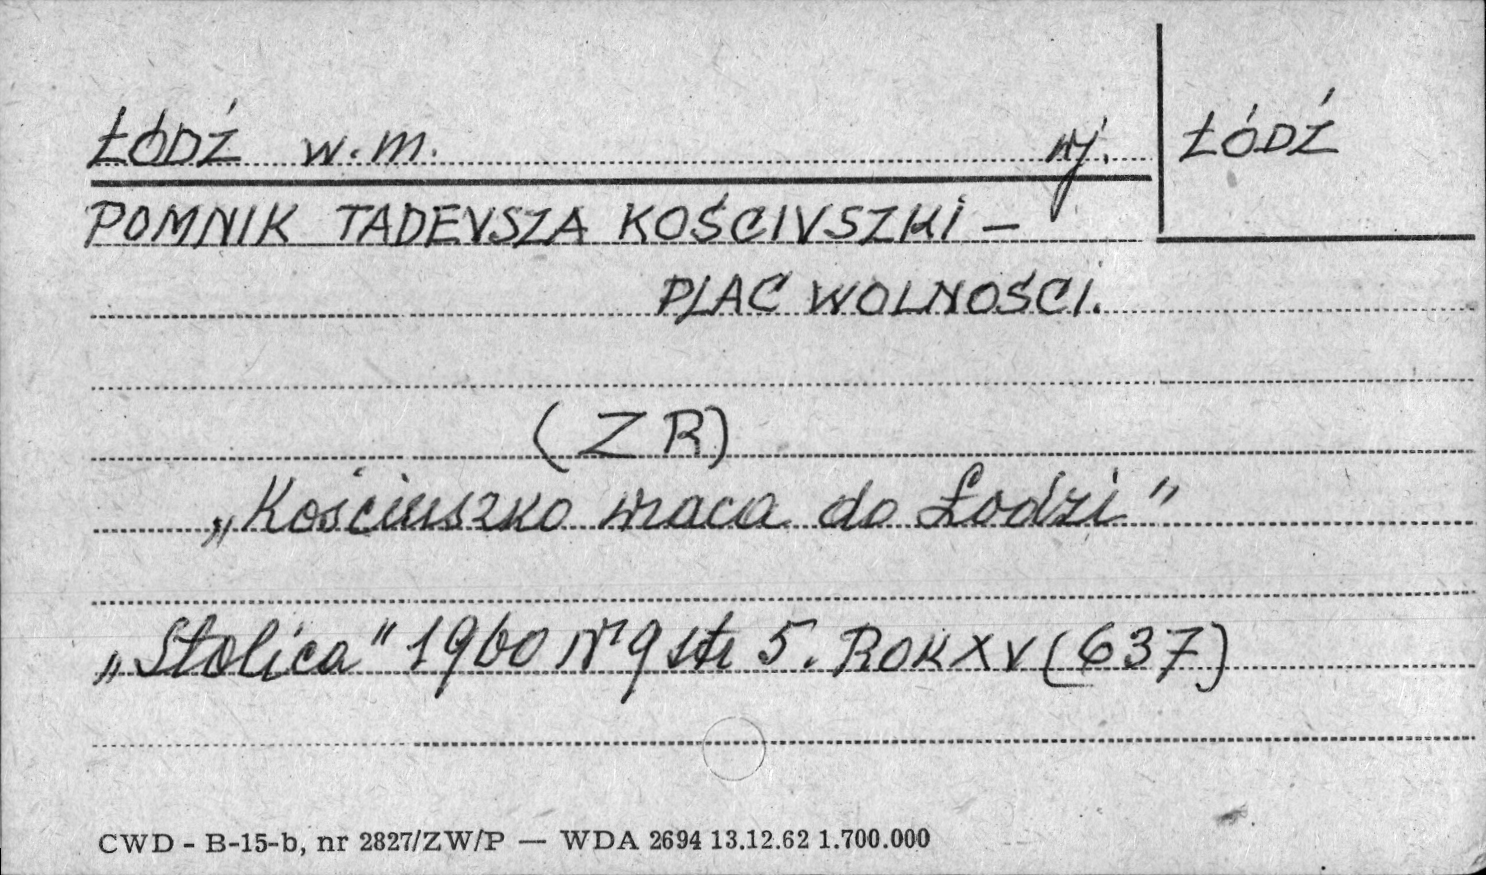 ŁÓDŹ w.m. wj. ŁÓDŹ
POMNIK TADEUSZA KOŚCIUSZKI –
PLAC WOLNOŚCI.
(ZR)
„Kościuszko wraca do Łodzi"
„Stolica" 1960 Nr 9 str 5. ROK XV (637)
CWD - B-15-b, nr 2827/ZW/P — WDA 2694 13.12.62 1.700.000